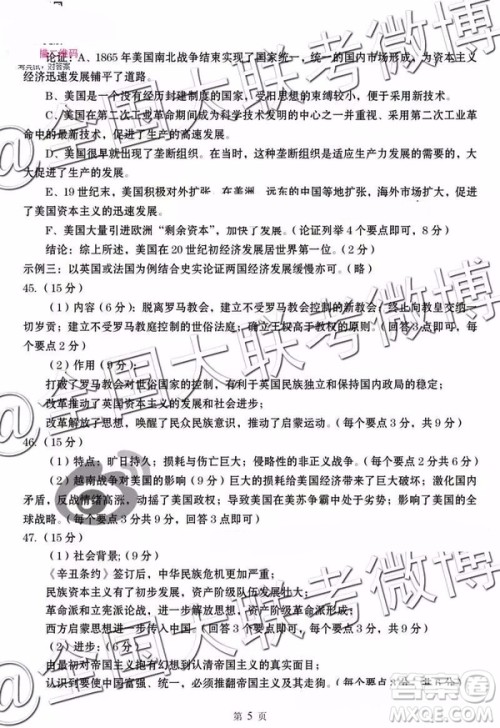 论证：A、1865 年美国南北战争结束实现了国家统一，统一的国内市场形成，为资本主义
经济迅速发展铺平了道路。
B、美国是一个没有经历封建制度的国家，受旧思想的束缚较小，便于采用新技术。
C、美国在第二次工业革命期间成为科学技术发明的中心之一并重视、采用第二次工业革
命中的最新技术，促进了生产的高速发展。
D、美国很早就出现了垄断组织。垄断组织的出现在当时适应了生产力发展的需要，大
大促进了生产的发展。
E、19 世纪末，美国积极对外扩张，在美洲、远东的中国等地扩张，海外市场扩大，促进
了美国资本主义的迅速发展。
F、美国大量引进欧洲“剩余资本”，加快了发展。（论证列举 4 个要点即可，8 分）
结论：综上所述，美国在 20 世纪初经济发展居世界第一位。（2 分）
示例三：以英国或法国为例结合史实论证两国经济发展缓慢亦可。（略）
45.（15 分）
（1）内容（6 分）：脱离罗马教会，建立不受罗马教会控制的新教会；终止向教皇交纳一
切岁贡；建立不受罗马教庭控制的世俗法庭；确立王权高于教权的原则。（回答 3 点即可，每
个要点 2 分）
（2）作用（9 分）：
打破了罗马教会对世俗国家的控制，有利于英国民族独立和保持国内政局的稳定；
改革推动了英国资本主义的发展和社会进步；
改革解放了思想，唤醒了民众民族意识，推动了启蒙运动。（每个要点 3 分，共 9 分）
46.（15 分）
（1）特点：旷日持久；损耗与伤亡巨大；侵略性的非正义战争。（每个要点 2 分共 6 分）
（2）越南战争对美国的影响：损耗与伤亡巨大给美国经济带来了巨大破坏；激化国内
矛盾，反战情绪高涨，动摇了美国政权；导致美国在美苏争霸中处于劣势；影响了美国的全
球战略。（每个要点 3 分共 9 分，回答 3 点即可）
47.（15 分）
（1）社会背景；（9 分）
《辛丑条约》签订后，中华民族危机更加严重；
民族资本主义进一步发展，资产阶级队伍发展壮大；
革命派和立宪派论战，进一步解放了思想，资产阶级革命派形成；
西方启蒙思想进一步在中国传播。（每个要点 3 分，共 9 分，回答 3 点即可）
（2）进步：（6 分）
由最初对帝国主义抱有幻想到认清帝国主义的真实面目；
认识到要使中国富强、统一，必须推翻帝国主义及其走狗。（每个要点 3 分，共 6 分）
第 5 页
@全国大联考微博
@全国大联考微博